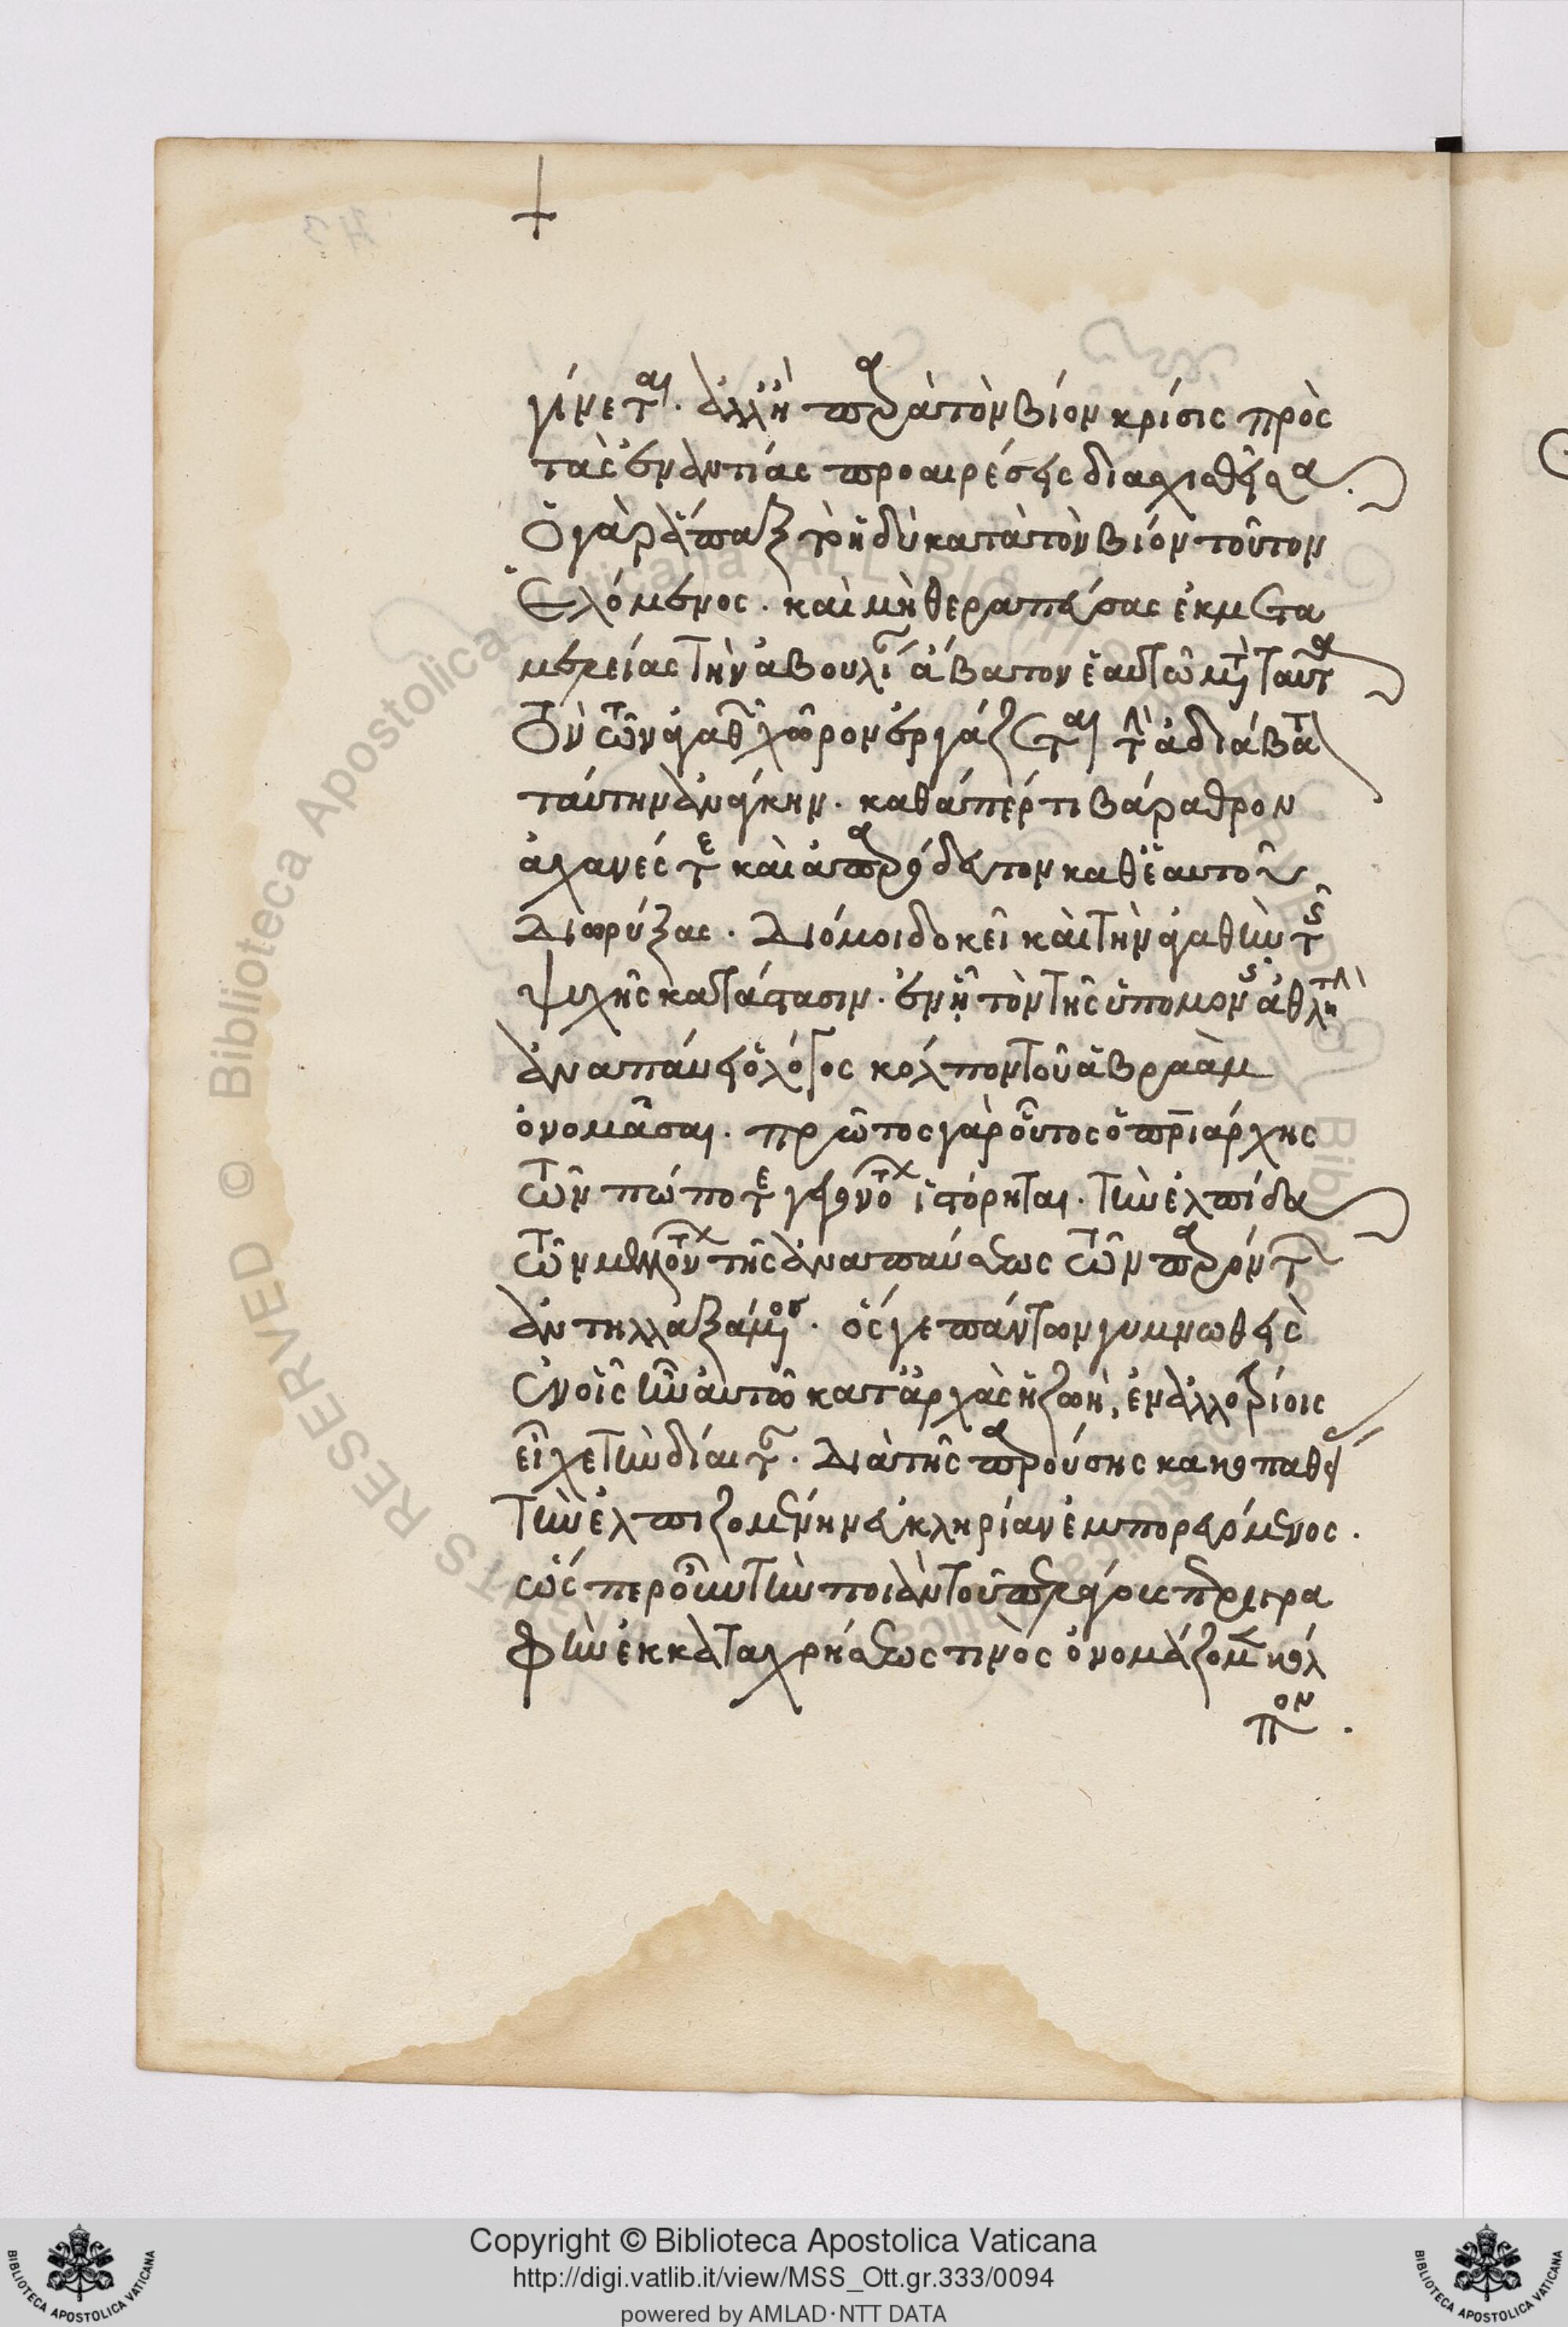 γίνεται. ἀλλ' ἡ παρὰ τὸν βίον κρίσις πρὸς
τὰς ἐναντίας προαιρέσεις διασχισθεῖσα.
Ὁ γὰρ ἅπαξ τὸ ἡδὺ κατὰ τὸν βίον τοῦτον
ἑλόμενος. καὶ μὴ θεραπεύσας ἐκ μετα
μελείας τὴν ἀβουλίαν ἄβατον ἑαυτῷ μετὰ ταῦτα
τὸν τῶν ἀγαθῶν χῶρον ἐργάζεται τὴν ἀδιάβατον
ταύτην ἀνάγκην. καθάπερ τι βάραθρον
ἀχανές τε καὶ ἀπαρόδευτον καθ' ἑαυτοῦ
διορύξας. Διό μοι δοκεῖ καὶ τὴν ἀγαθὴν τῆς
ψυχῆς κατάστασιν. ἐν ᾗ τὸν τῆς ὑπομονῆς ἀθλητὴν
ἀναπαύει ὁ λόγος κόλπον τοῦ ἀβραὰμ
ὀνομᾶσαι. πρῶτος γὰρ οὗτος ὁ πατριάρχης
τῶν πώποτε γεγονότων ἱστόρηται. τὴν ἐλπίδα
τῶν μελλόντων τῆς ἀναπαύσεως τῶν παρόντων
ἀντηλλαξάμενος. ὅς γε πάντων γυμνωθεὶς
ἐν οἷς ἦν αὐτῷ κατ' ἀρχὰς ἡ ζωὴ, ἐν ἀλλοτρίοις
εἶχε τὴν δίαιταν. Διὰ τῆς παρούσης κακοπαθείας
τὴν ἐλπιζομένην εὐκληρίαν ἐμπορευόμενος.
ὥσπερ οὖν τὴν ποιὰν τοῦ πελάγους περιγρα
φὴν ἐκ καταχρήσεώς τινος ὀνομάζομεν κόλ
πον.
Copyright © Biblioteca Apostolica Vaticana
http://digi.vatlib.it/view/MSS_Ott.gr.333/0094
powered by AMLAD·NTT DATA